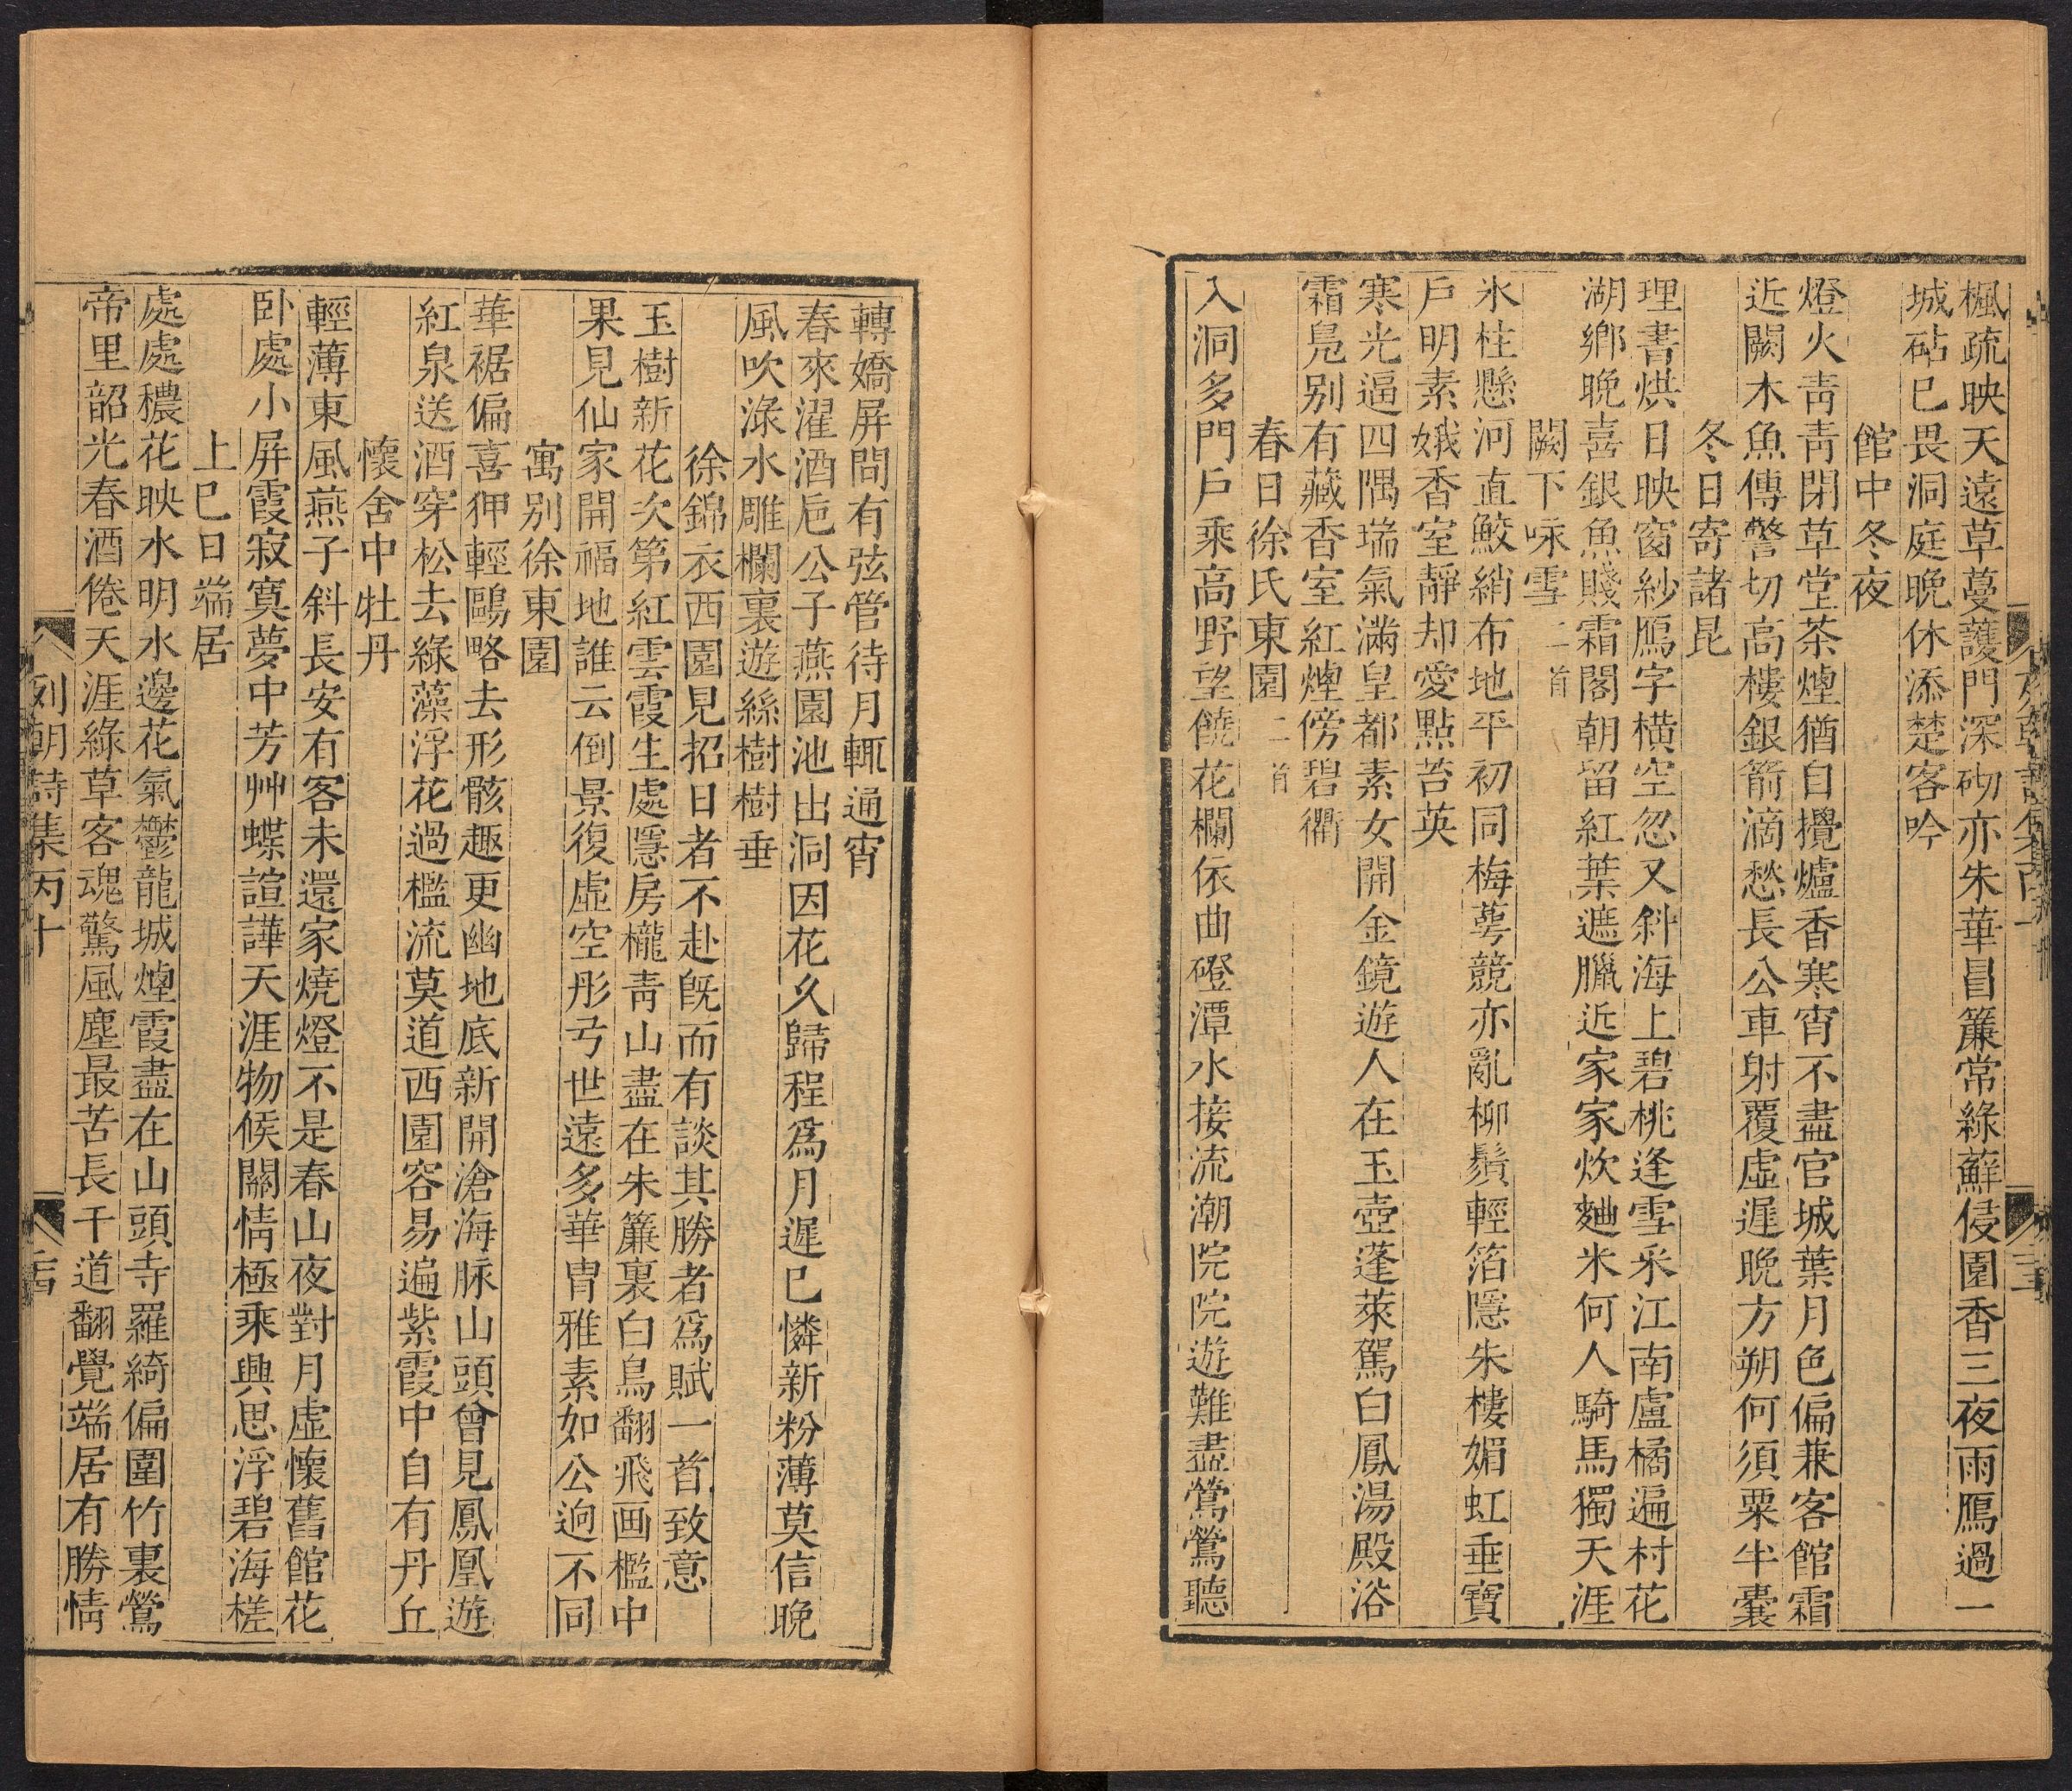 楓疏映天遠草蔓護門深砌亦朱華冒簾常綠蘚侵園香三夜雨鴈過一
城砧已畏洞庭晚休添楚客吟
館中冬夜
燈火青青閉草堂茶煙猶自攪爐香寒宵不盡官城葉月色偏兼客館霜
近闕木魚傳警切高樓銀箭滴愁長公車射覆虛遲晚方朔何須粟半囊
冬日寄諸昆
理書烘日映窗紗鴈字橫空忽又斜海上碧桃逢雪采江南盧橘遍村花
湖鄉晚喜銀魚賤霜閣朝留紅葉遮臘近家家炊麯米何人騎馬獨天涯
闕下咏雪二首
氷柱懸河直鮫綃布地平初同梅萼競亦亂柳鬚輕箔隱朱樓媚虹垂寶
戶明素娥香室靜却愛點苔英
寒光逼四隅瑞氣滿皇都素女開金鏡遊人在玉壺蓬萊駕白鳳湯殿浴
霜鳧別有藏香室紅煙傍碧衢
春日徐氏東園二首
入洞多門戶乘高野望饒花欄依曲磴潭水接流潮院院遊難盡鶯鶯聽
轉嬌屏問有弦管待月輒通宵
春來濯酒卮公子燕園池出洞因花久歸程爲月遲已憐新粉薄莫信晚
風吹淥水雕欄裏遊絲樹樹垂
徐錦衣西園見招日者不赴旣而有談其勝者爲賦一首致意
玉樹新花次第紅雲霞生處隱房櫳青山盡在朱簾裏白鳥翻飛画檻中
果見仙家開福地誰云倒景復虛空彤弓世遠多華胄雅素如公逈不同
寓別徐東園
華裾偏喜狎輕鷗略去形骸趣更幽地底新開滄海脉山頭曾見鳳凰遊
紅泉送酒穿松去綠藻浮花過檻流莫道西園容易遍紫霞中自有丹丘
懷舍中牡丹
輕薄東風燕子斜長安有客未還家燒燈不是春山夜對月虛懷舊館花
卧處小屏霞寂寞夢中芳艸蝶諠譁天涯物候關情極乘興思浮碧海槎
上巳日端居
處處穠花映水明水邊花氣鬱龍城煙霞盡在山頭寺羅綺偏圍竹裏鶯
帝里韶光春酒倦天涯綠草客魂驚風塵最苦長干道翻覺端居有勝情
列朝詩集丙十